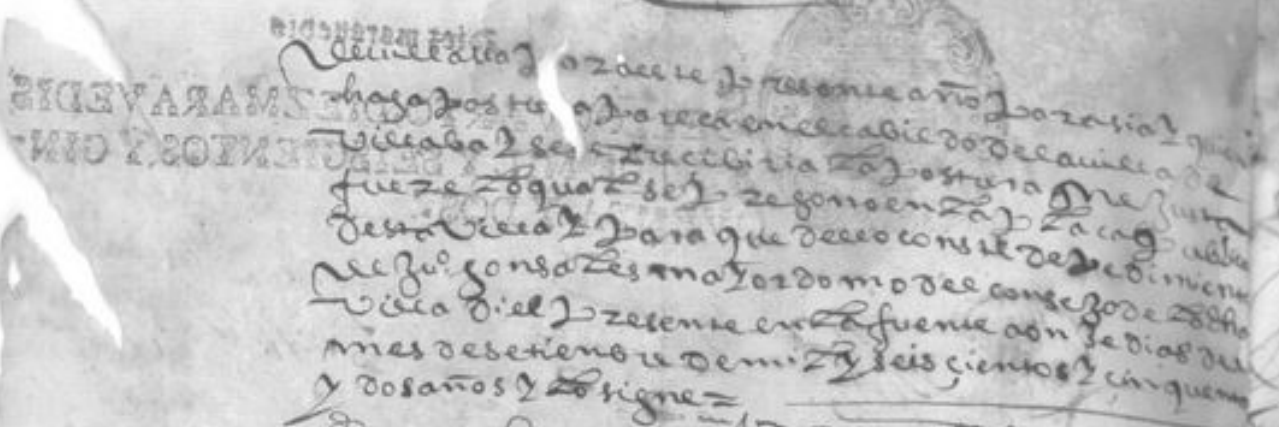 de villalva para este presente año para si ay quien
haga postura parezca en el cabildo de la villa de
villalva y se le Recibiria la postura que justa
fuere lo qual se pregono en la plaça publica
desta villa y para que dello conste de pedimiento
de Ju.º gonsales mayordomo del consejo de la dha
villa di el presente en la fuente a on ze dias del
mes de setienbre de mil y seis çientos y cinquenta
y dos años y lo signe =